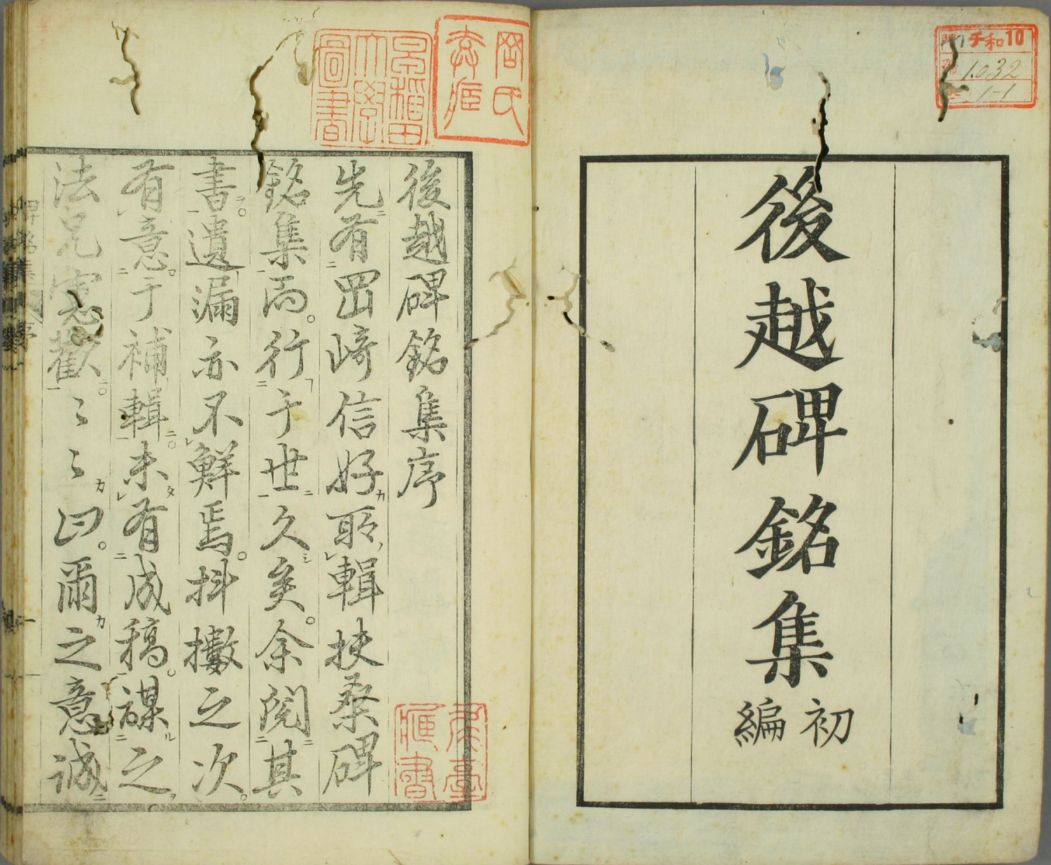 チ和10
1.032
1-1
後越碑銘集 初編
後越碑銘集序
先有罡崎信好所輯扶桑碑
銘集而行于世久矣余閲其
書遺漏亦不鮮焉抖擻之次
有意于補輯未有成稿謀之
法兄歡〻〻曰爾之意誠
早稲田大學圖書